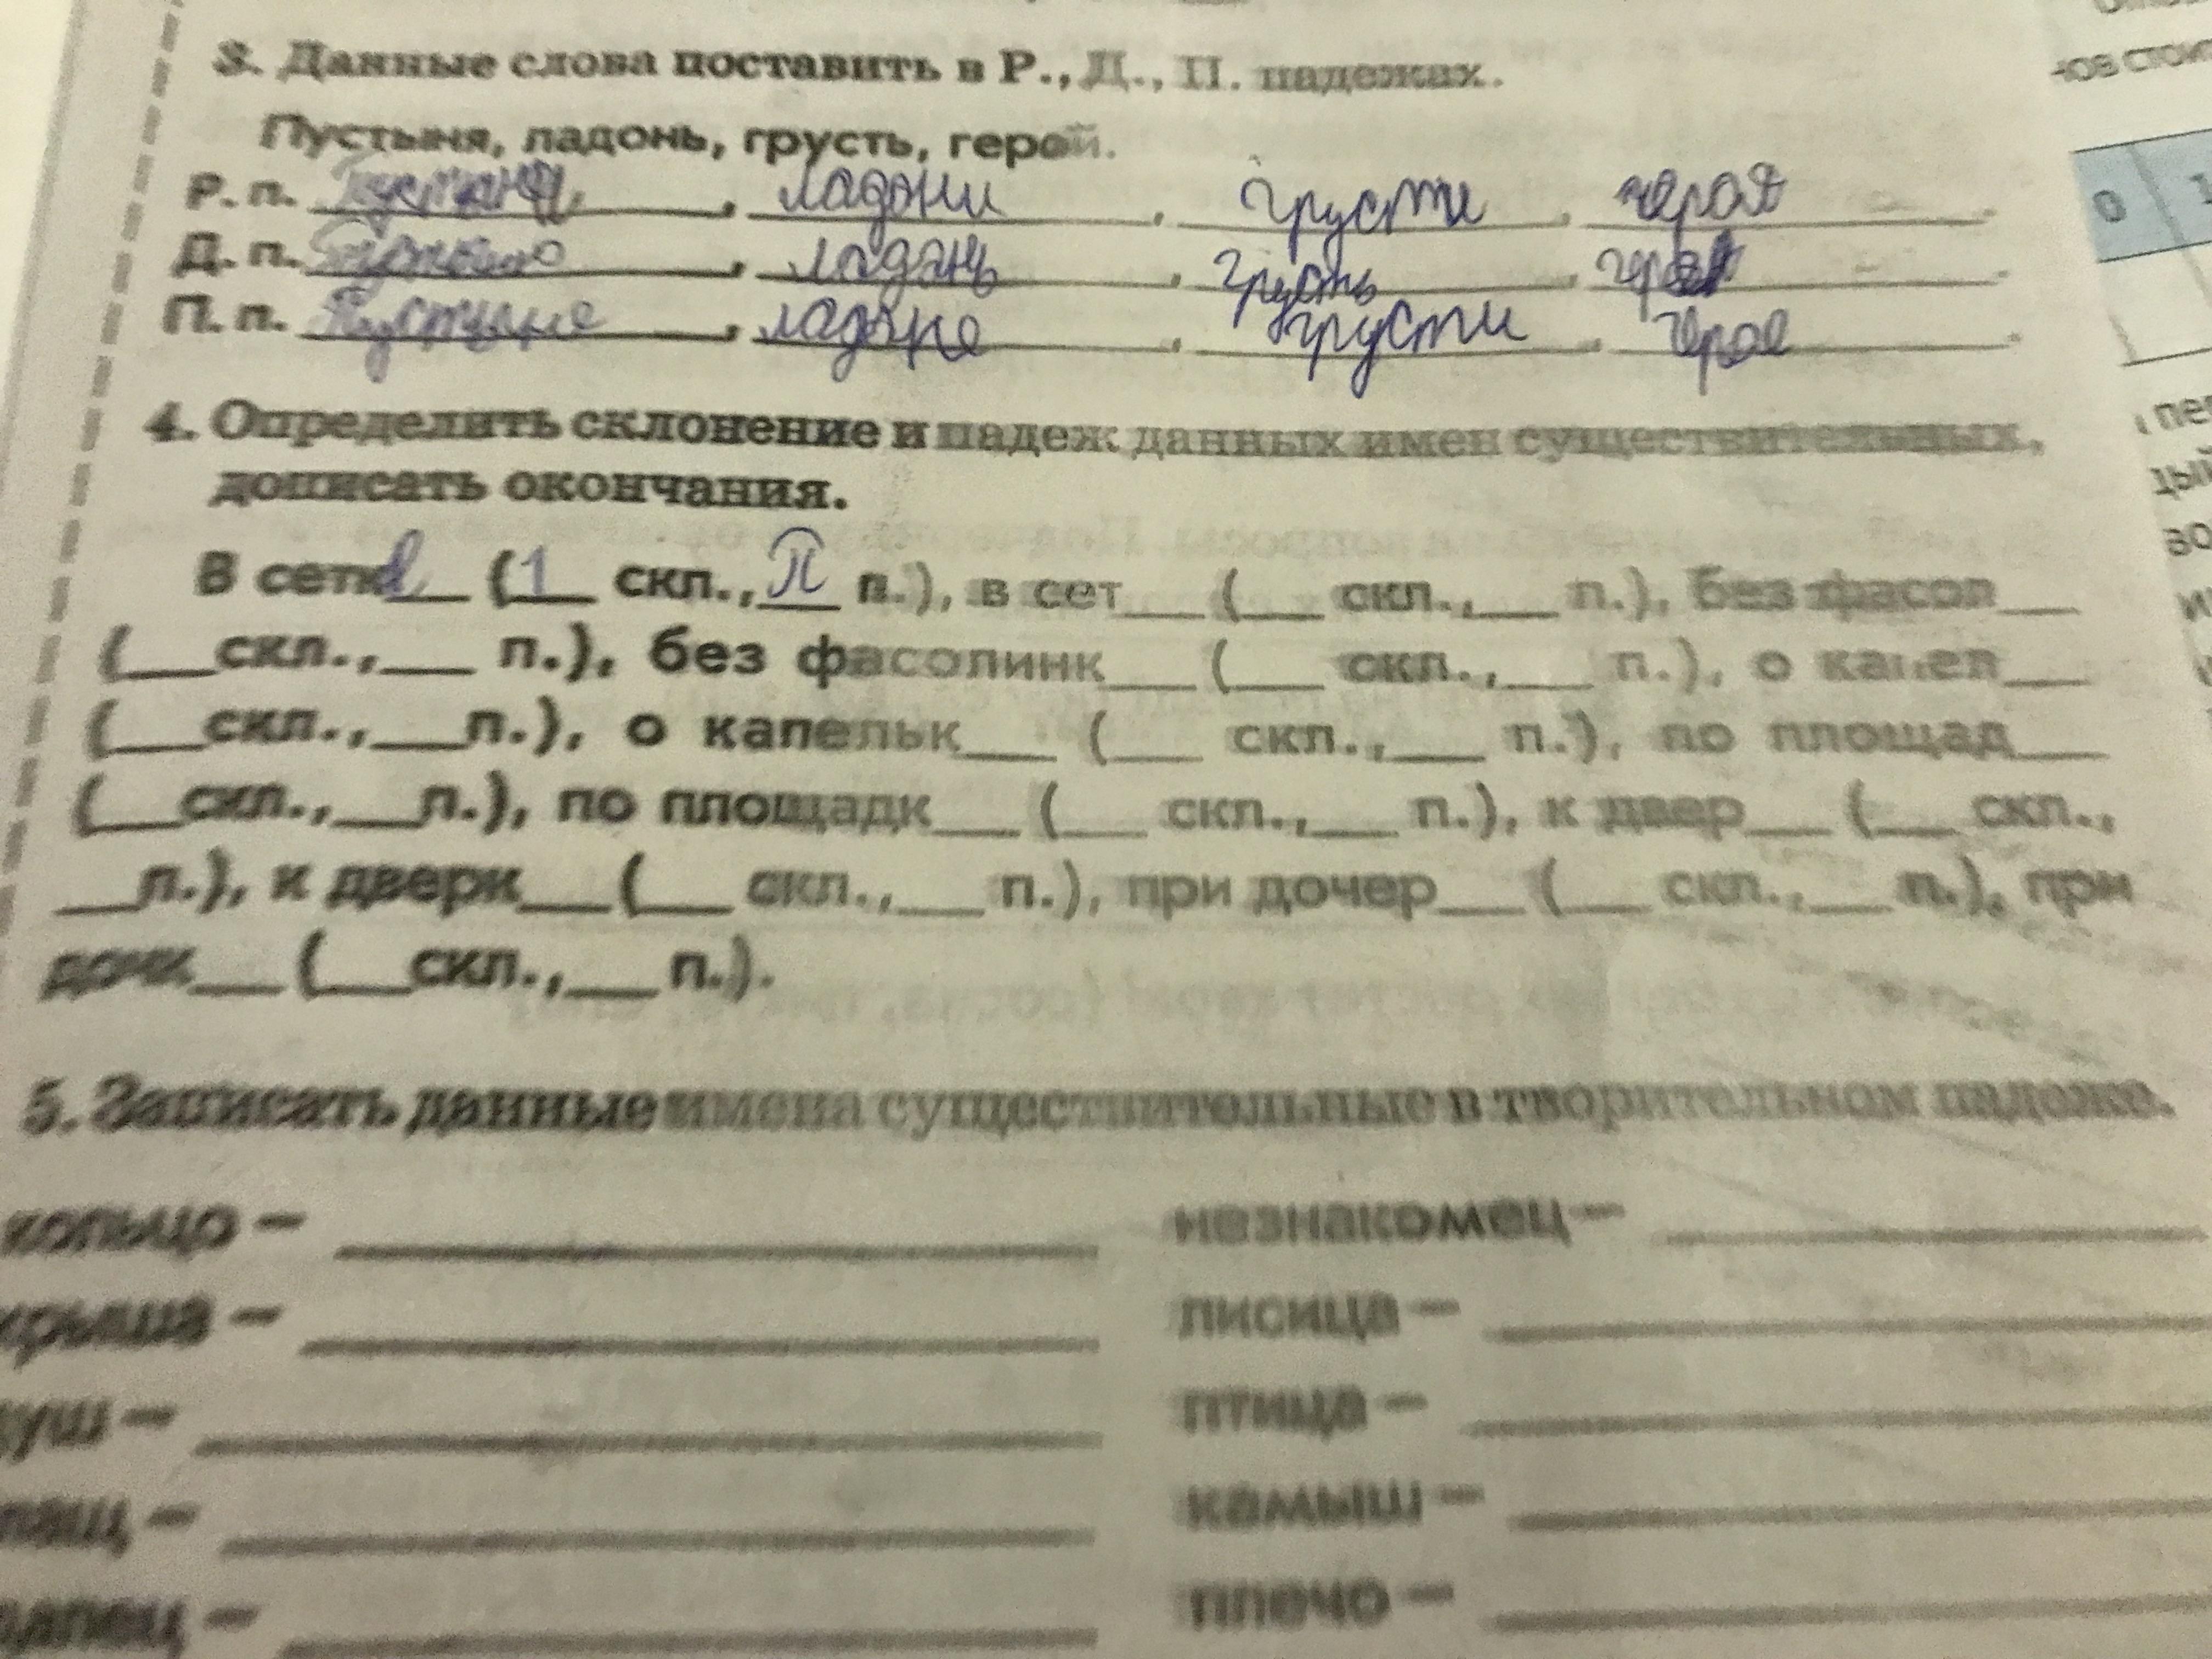 3. Данные слова поставить в Р., Д., П. падежах.
Пустыня, ладонь, грусть, герой.
Р. п. , ладони , грусти , героя .
Д. п. , ладонь , грусть , .
П. п. Пустыне , ладоне , грусти , герое .
4. Определить склонение и падеж данных имен существительных,
дописать окончания.
В сетк___ (1 скл., П п.), в сет___ (___ скл.,___ п.), без фасол___
(___скл.,___ п.), без фасолинк___ (___ скл.,___ п.), о капел___
(___скл.,___п.), о капельк___ (___ скл.,___ п.), по площад___
(___скл.,___п.), по площадк___ (___ скл.,___ п.), к двер___ (___ скл.,
___п.), к дверк___ (___ скл.,___ п.), при дочер___ (___ скл.,___ п.), при
дочк___ (___скл.,___ п.).
5. Записать данные имена существительные в творительном падеже.
кольцо – незнакомец –
крыша – лисица –
уш – птица –
камыш –
плечо –
0 1